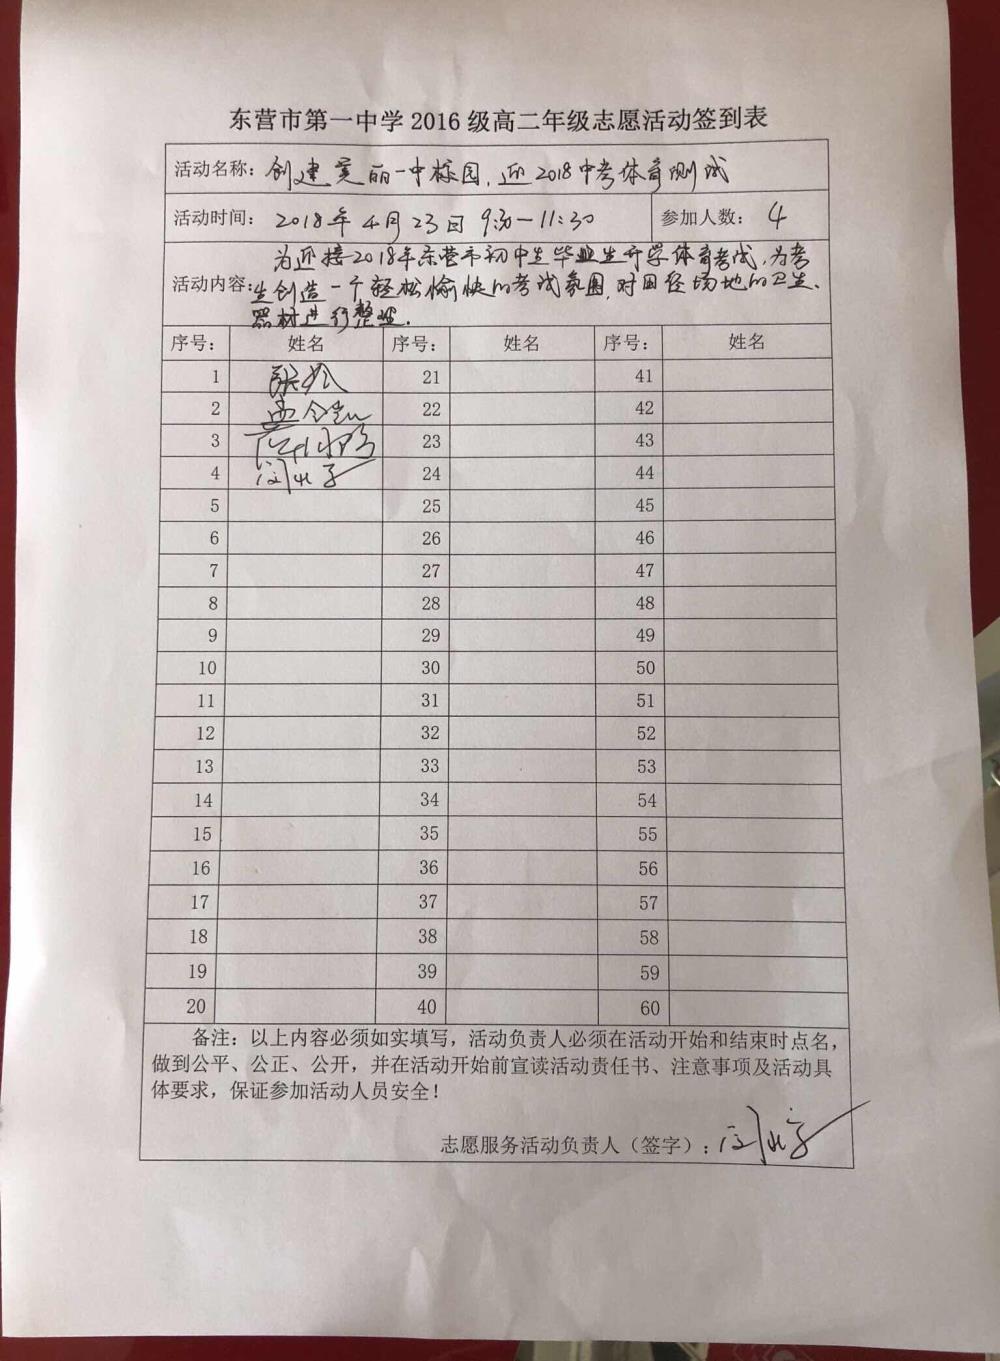 东营市第一中学2016级高二年级志愿活动签到表
活动名称：创建美丽一中校园，迎2018中考体育测试
活动时间： 2018年4月23日 9:30—11:30 参加人数： 4
为迎接2018年东营市初中生毕业生升学体育考试，为考
活动内容：生创造一个轻松愉快的考试氛围，对田径场地的卫生、
器材进行整理.
序号： 姓名 序号： 姓名 序号： 姓名
1 21 41
2 22 42
3 23 43
4 24 44
5 25 45
6 26 46
7 27 47
8 28 48
9 29 49
10 30 50
11 31 51
12 32 52
13 33 53
14 34 54
15 35 55
16 36 56
17 37 57
18 38 58
19 39 59
20 40 60
备注：以上内容必须如实填写，活动负责人必须在活动开始和结束时点名，
做到公平、公正、公开，并在活动开始前宣读活动责任书、注意事项及活动具
体要求，保证参加活动人员安全！
志愿服务活动负责人（签字）：